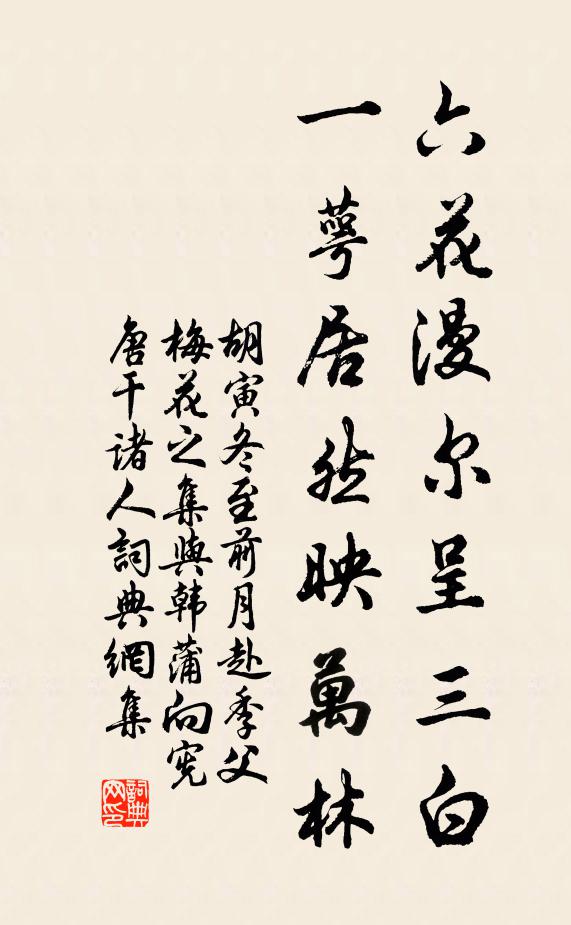 六花漫尔呈三白
一萼居然映萬林
胡寅冬至前月赴季父
梅花之集與韩蒲向宪
唐干诸人詞典網集
詞典网印